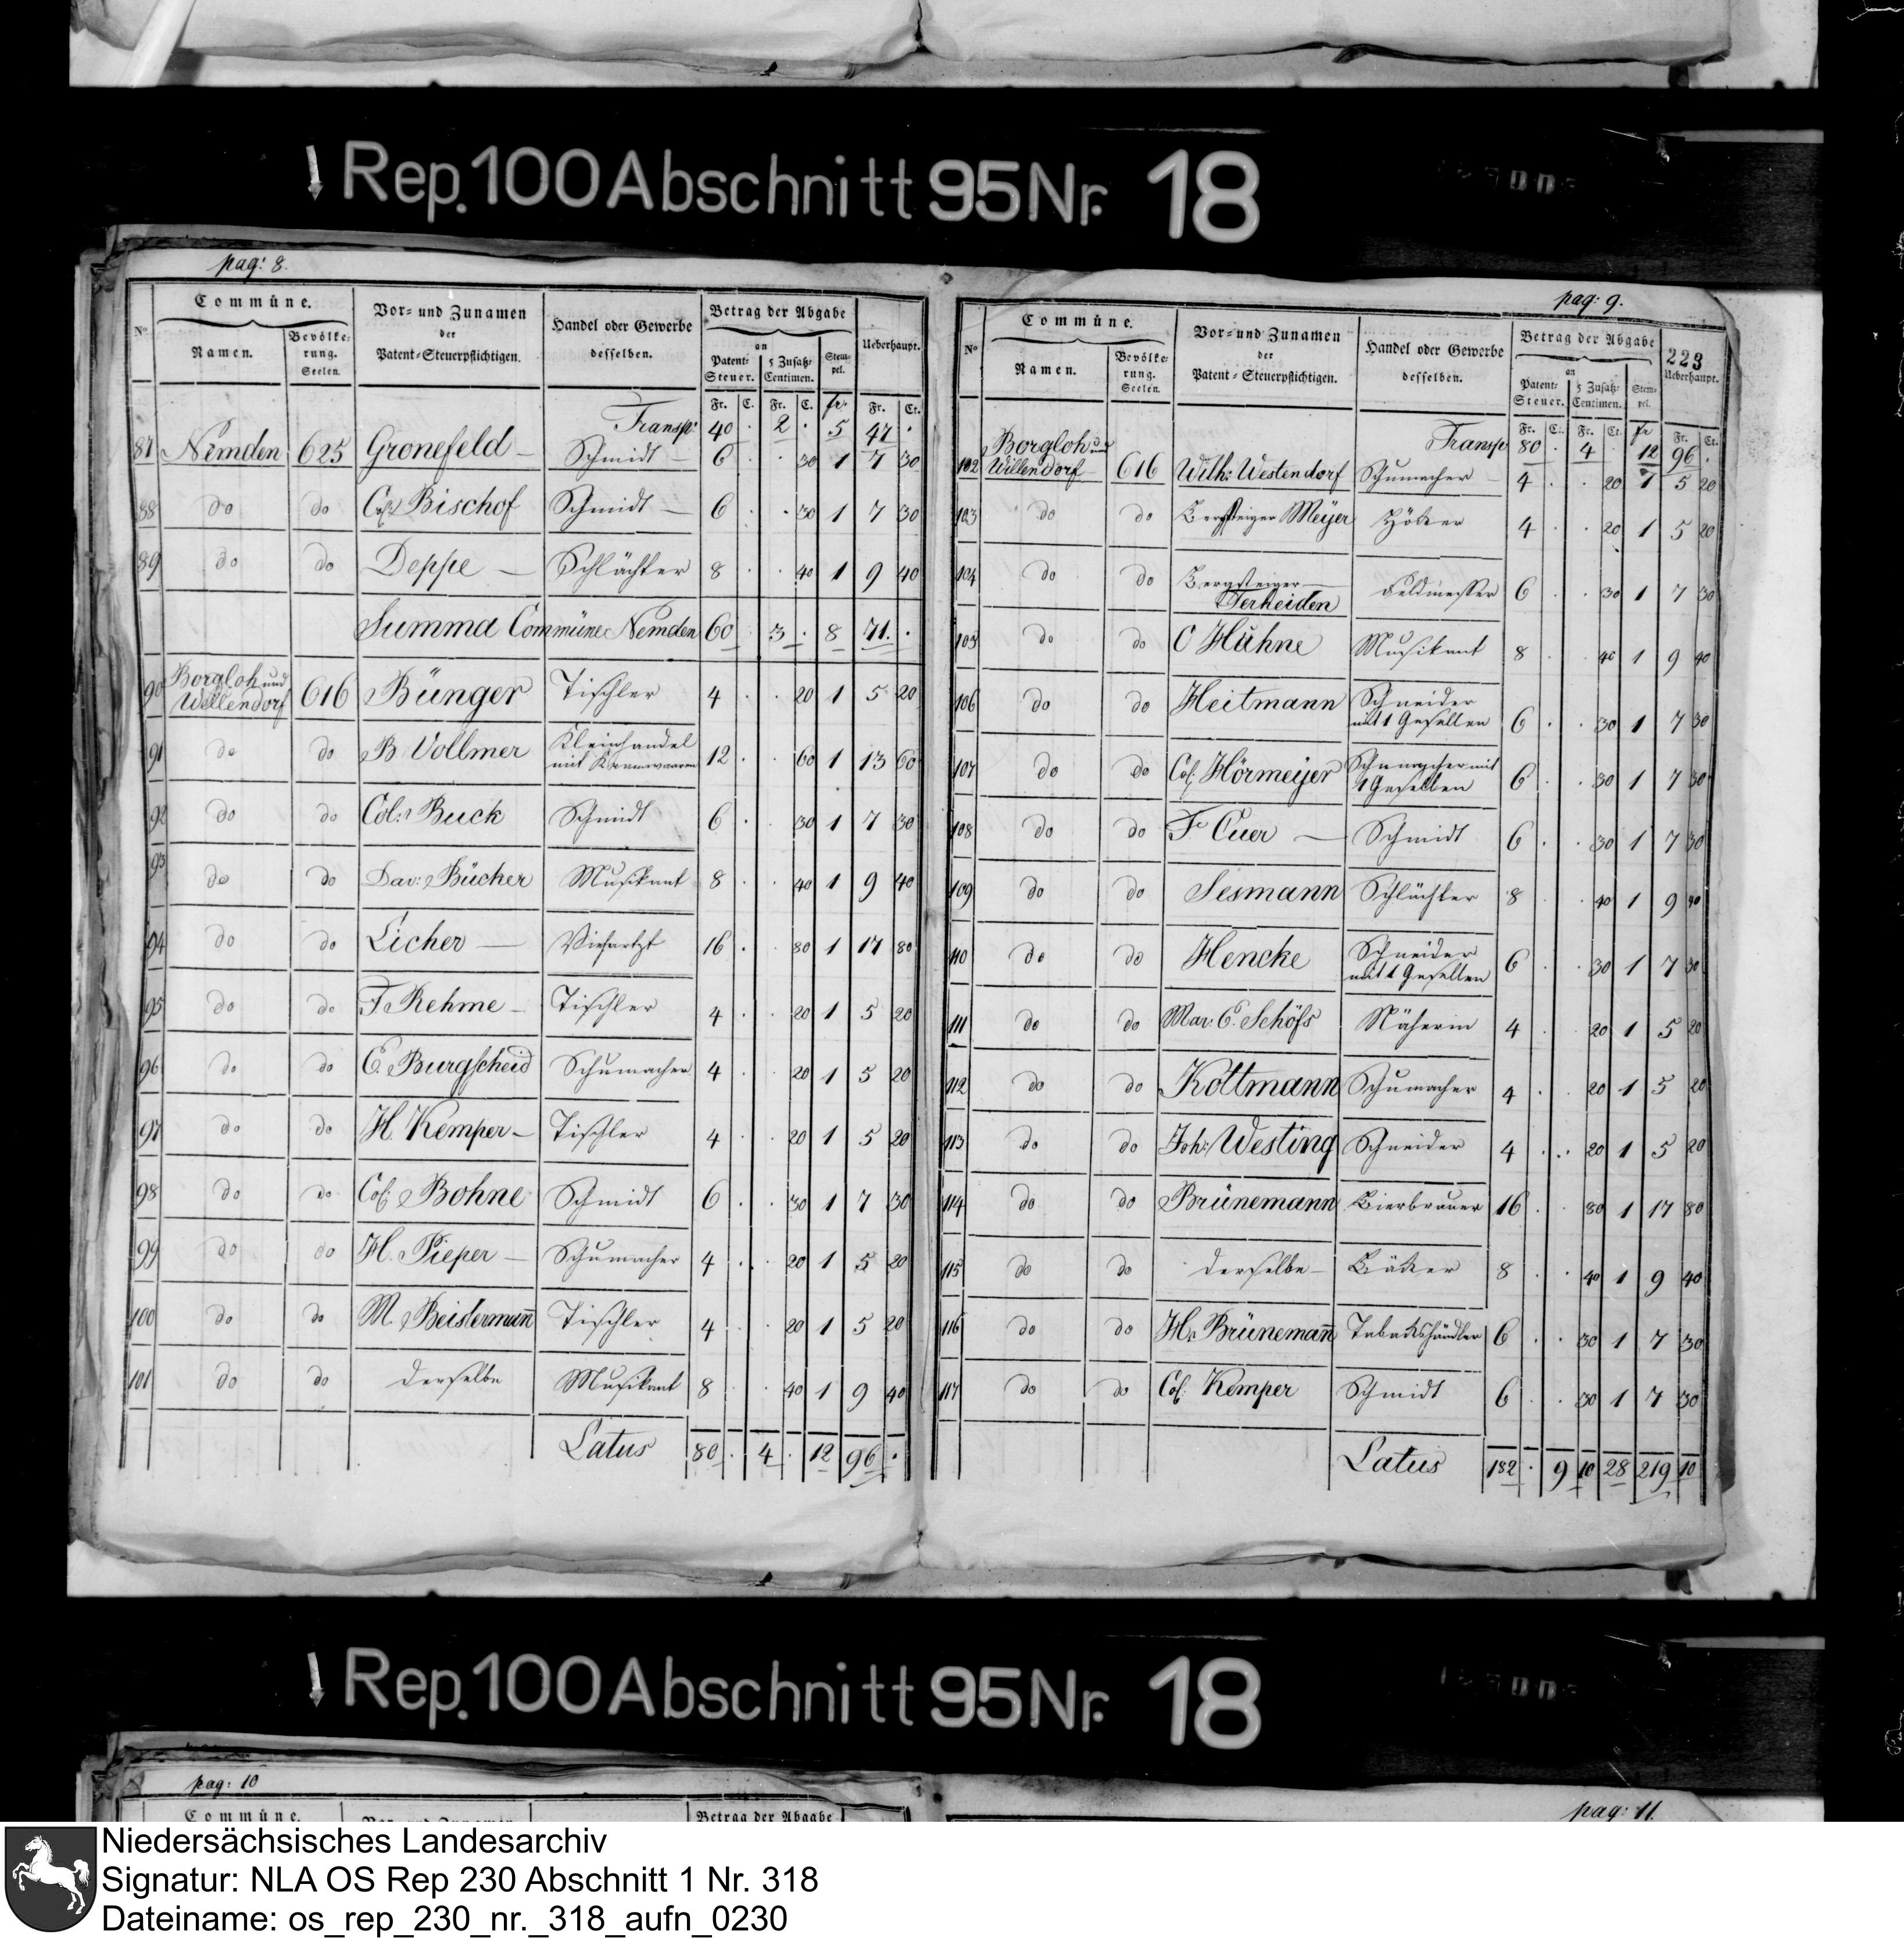 Rep. 100 Abschnitt 95 Nr. 18
pag: 8.
Commüne. Vor- und Zunamen Handel oder Gewerbe Betrag der Abgabe
No Namen. Bevölke-rung. Seelen. der Patent-Steuerpflichtigen. desselben. an Patent-Steuer. 5 Zusatz-Centimen. Stem-pel. Ueberhaupt.
Fr. C. Fr. C. fr. Fr. Ct.
Transp: 40 . 2 . 5 47 .
87 Nemden 625 Gronefeld – Schmidt – 6 . . 30 1 7 30
88 do do Col: Bischof Schmidt – 6 . . 30 1 7 30
89 do do Deppe – Schlächter 8 . . 40 1 9 40
Summa Commüne Nemden 60 3 . 8 71. .
90 Borgloh und Wellendorf 616 Bünger Tischler 4 . . 20 1 5 20
91 do do B Vollmer Kleinhandel mit Kramwaaren 12 . . 60 1 13 60
92 do do Col: Buck Schmidt 6 . . 30 1 7 30
93 do do Dav: Bücher Musikant 8 . . 40 1 9 40
94 do do Licher – Viehartzt 16 . . 80 1 17 80
95 do do F. Rehme – Tischler 4 . . 20 1 5 20
96 do do C. Burgscheid Schumacher 4 . . 20 1 5 20
97 do do H. Kemper – Tischler 4 . . 20 1 5 20
98 do do Col: Bohne Schmidt 6 . . 30 1 7 30
99 do do H. Pieper – Schumacher 4 . . 20 1 5 20
100 do do M. Beistermañ Tischler 4 . . 20 1 5 20
101 do do derselbe Musikant 8 . . 40 1 9 40
Latus 80 . 4 . 12 96 .
pag: 9.
223
Commüne. Vor- und Zunamen Handel oder Gewerbe Betrag der Abgabe
No Namen. Bevölke-rung. Seelen. der Patent-Steuerpflichtigen. desselben. an Patent-Steuer. 5 Zusatz-Centimen. Stem-pel. Ueberhaupt.
Fr. Ct. Fr. Ct. fr Fr. Ct.
Transp 80 . 4 . 12 96 .
102 Borgloh und Willendorf 616 Wilh: Westendorf Schumacher – 4 . . 20 1 5 20
103 do do Bergsteiger Meyer Höker 4 . . 20 1 5 20
104 do do Bergsteiger – Terheiden Feldmesser 6 . . 30 1 7 30
105 do do C Hühne Musikant 8 . . 40 1 9 40
106 do do Heitmann Schneider mit 1 Gesellen 6 . . 30 1 7 30
107 do do Col: Hörmeyer Schumacher mit 1 Gesellen 6 . . 30 1 7 30
108 do do F Cuer – Schmidt 6 . . 30 1 7 30
109 do do Sesmann Schlächter 8 . . 40 1 9 40
110 do do Hencke Schneider mit 1 Gesellen 6 . . 30 1 7 30
111 do do Mar: E. Schöfs Näherin 4 . . 20 1 5 20
112 do do Kottmann Schumacher 4 . . 20 1 5 20
113 do do Joh: Westing Schneider 4 . . 20 1 5 20
114 do do Brünemann Bierbrauer 16 . . 80 1 17 80
115 do do derselbe – Bäcker 8 . . 40 1 9 40
116 do do H. Brünemañ Tabakshändler 6 . . 30 1 7 30
117 do do Col: Kemper Schmidt 6 . . 30 1 7 30
Latus 182 . 9 10 28 219 10
Rep. 100 Abschnitt 95 Nr. 18
pag: 10
Commüne. Betrag der Abgabe
pag: 11.
Niedersächsisches Landesarchiv
Signatur: NLA OS Rep 230 Abschnitt 1 Nr. 318
Dateiname: os_rep_230_nr._318_aufn_0230